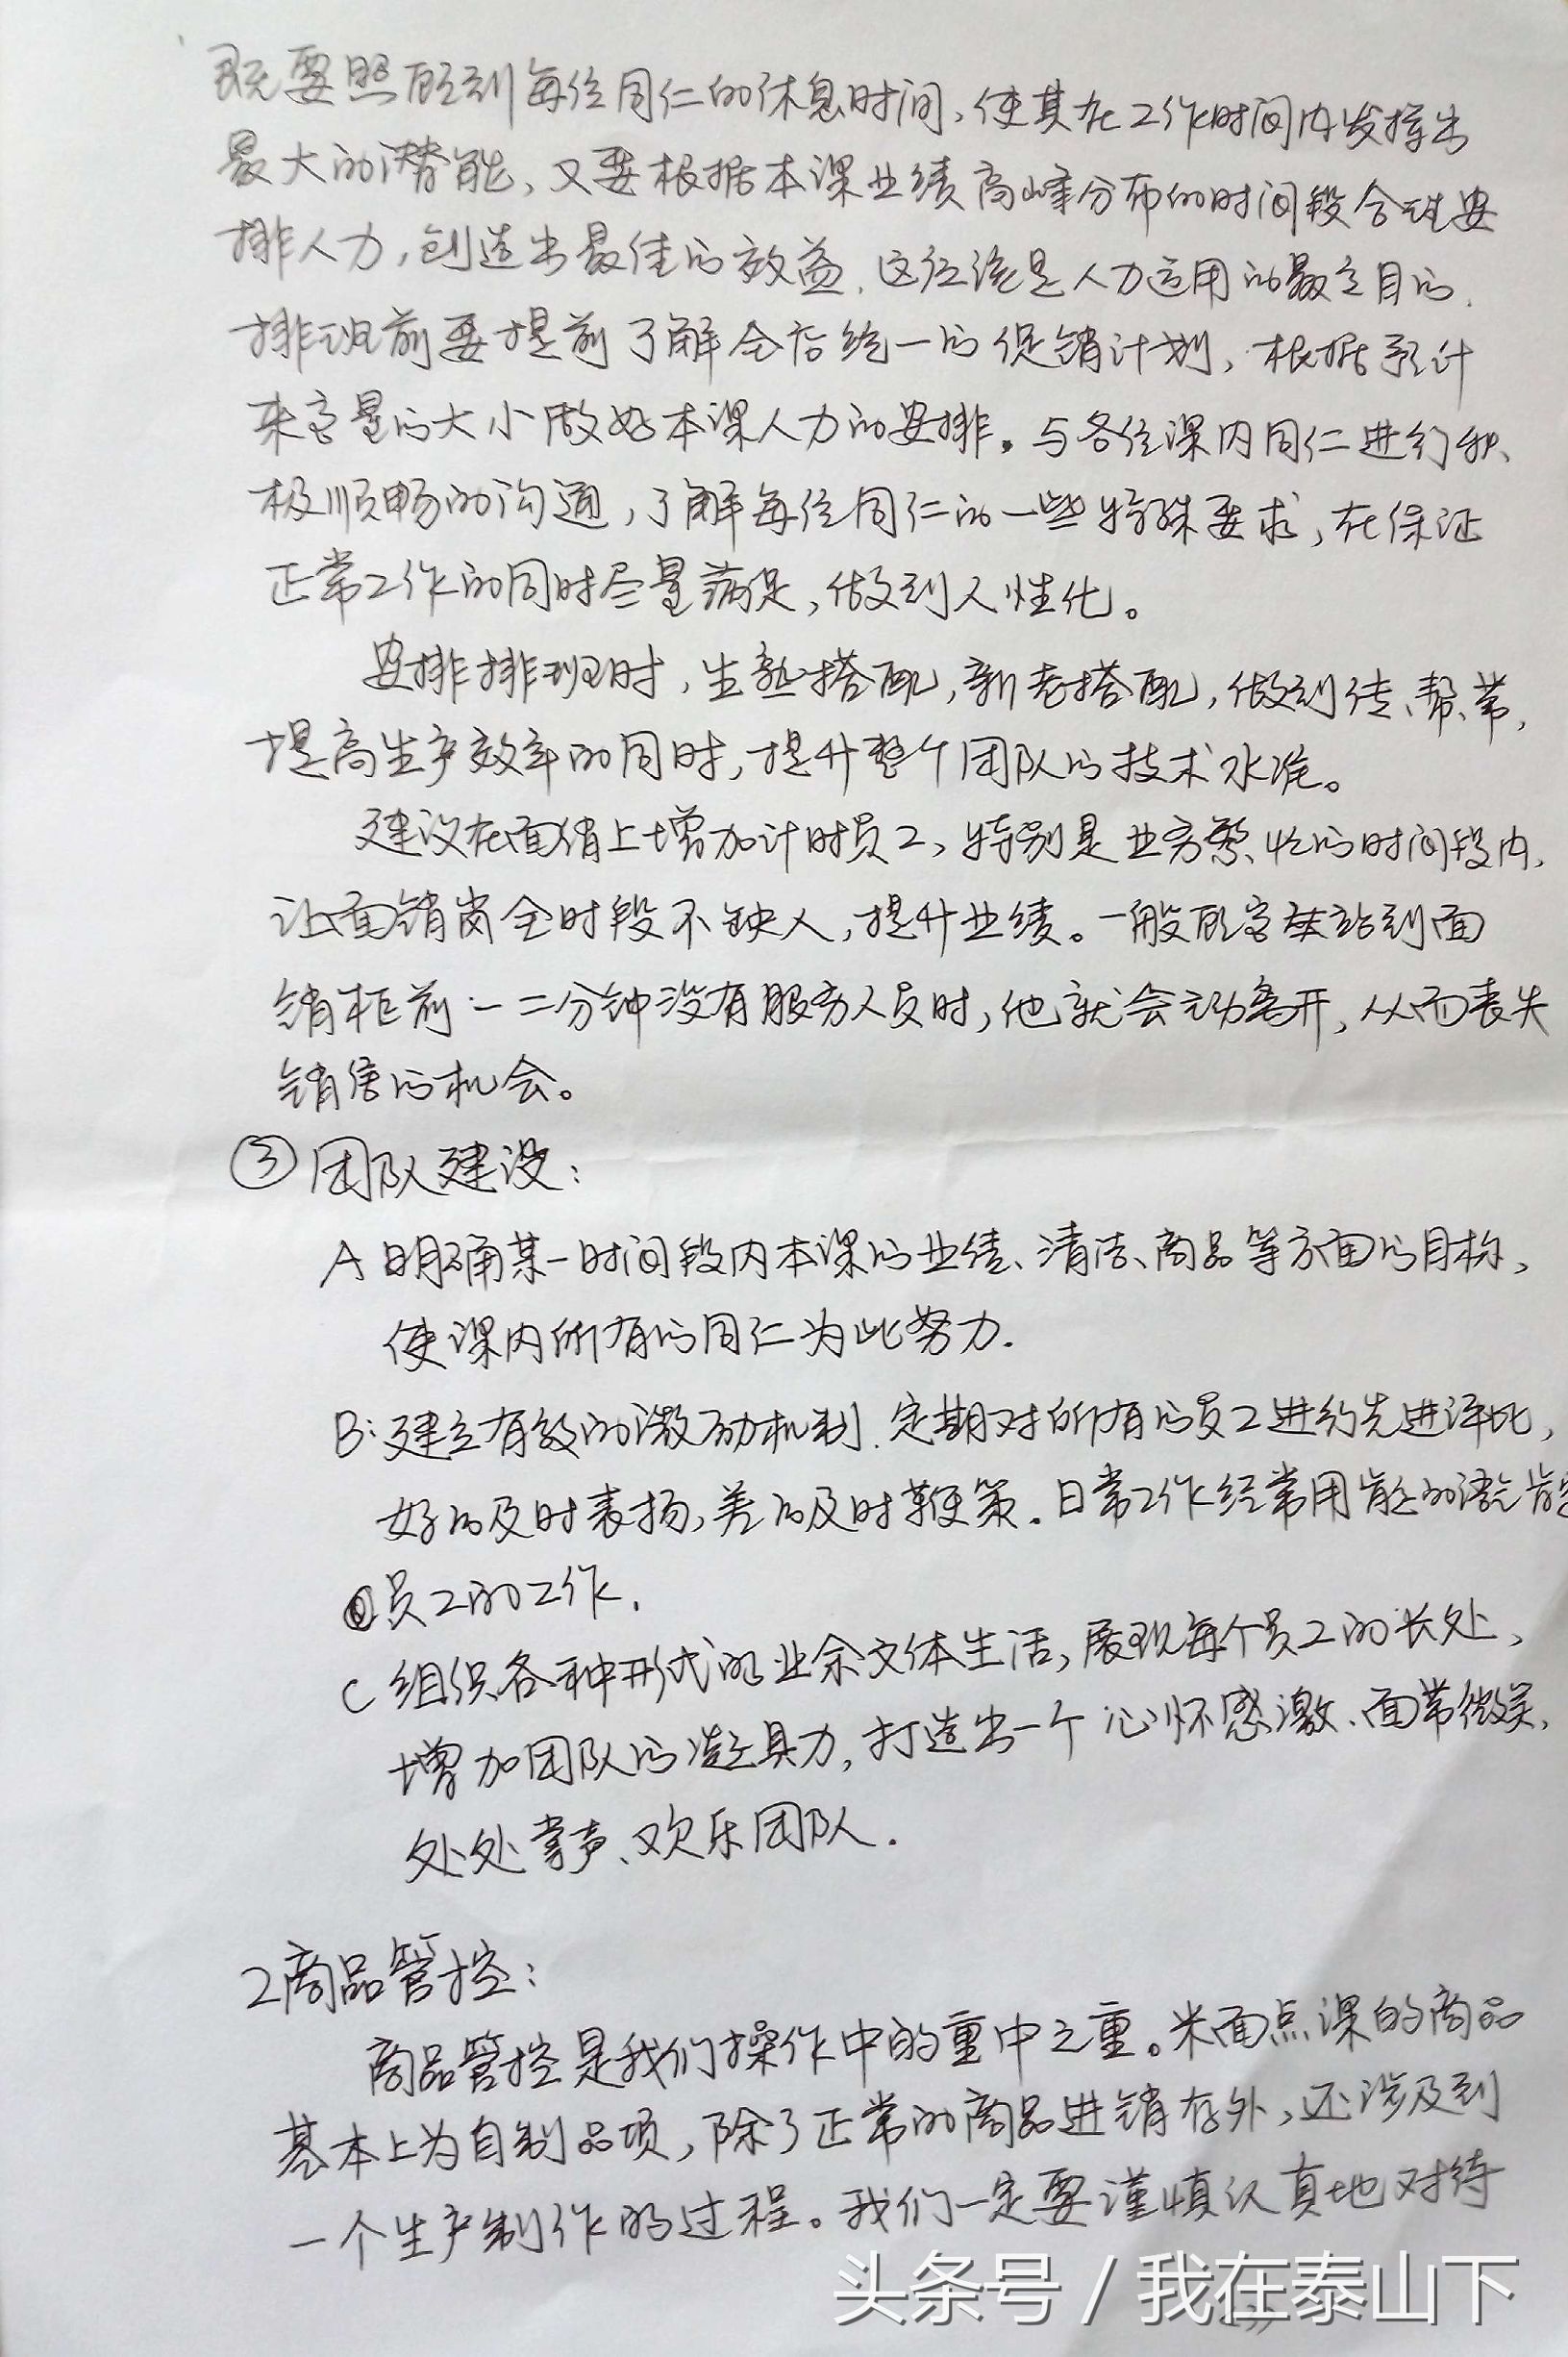 既要照顾到每位同仁的休息时间、使其在工作时间内发挥出
最大的潜能、又要根据本课业绩高峰分布的时间段合理安
排人力,创造出最佳的效益.这应该是人力运用的最主目的.
排班前要提前了解全店统一的促销计划,根据预计
来客量的大小做好本课人力的安排。与各位课内同仁进行积
极顺畅的沟通,了解每位同仁的一些特殊要求,在保证
正常工作的同时尽量满足,做到人性化。
安排排班时,生熟搭配,新老搭配,做到传、帮、带,
提高生产效率的同时,提升整个团队的技术水准。
建议在面销上增加计时员工,特别是业务繁忙的时间段内,
让面销岗全时段不缺人,提升业绩。一般顾客站到面
销柜前一二分钟没有服务人员时,他就会主动离开,从而丧失
销售的机会。
③团队建设:
A明确某一时间段内本课的业绩、清洁、商品等方面的目标,
使课内所有的同仁为此努力.
B:建立有效的激励机制.定期对所有的员工进行先进评比,
好的及时表扬,差的及时鞭策.日常工作经常用肯定的语言肯定
员工的工作.
C组织各种形式的业余文体生活,展现每个员工的长处,
增加团队的凝具力,打造出一个心怀感激、面带微笑、
处处掌声、欢乐团队.
2商品管控:
商品管控是我们操作中的重中之重。米面点课的商品
基本上为自制品项,除了正常的商品进销存外,还涉及到
一个生产制作的过程。我们一定要谨慎认真地对待
头条号/我在泰山下